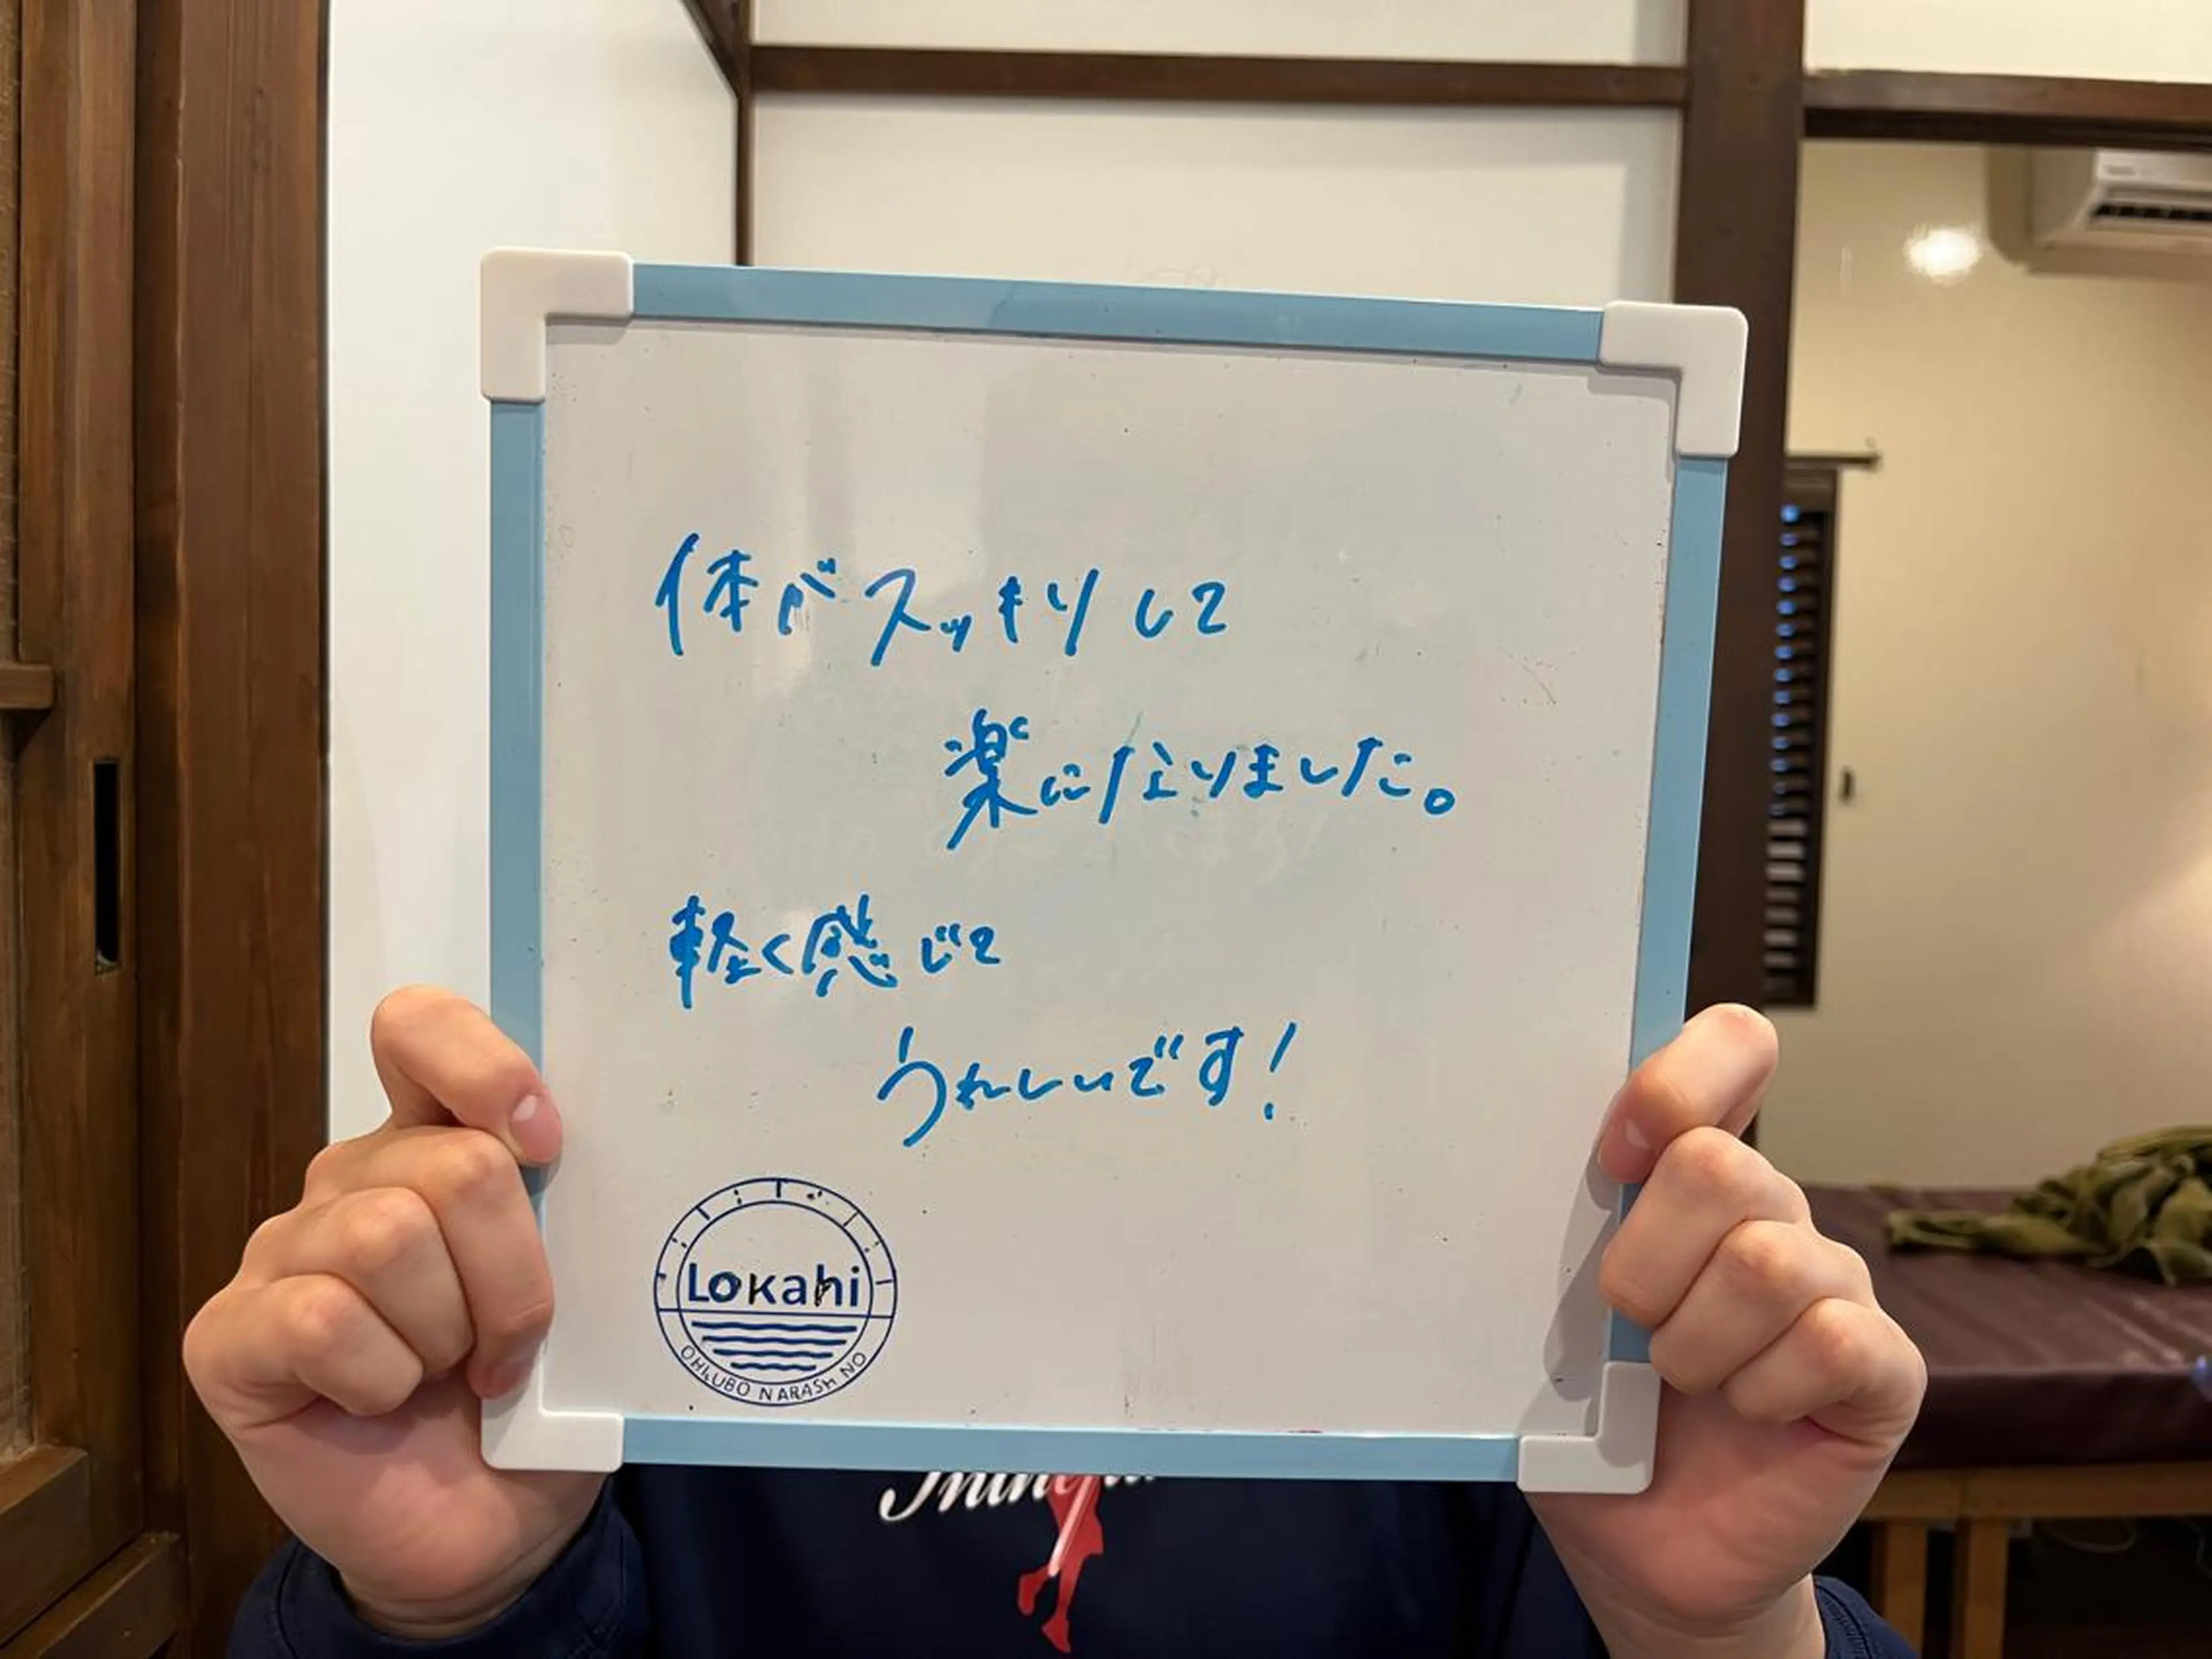 体がスッキリして
楽になりました。
軽く感じて
うれしいです!
Lokahi
OHKUBO NARASHINO